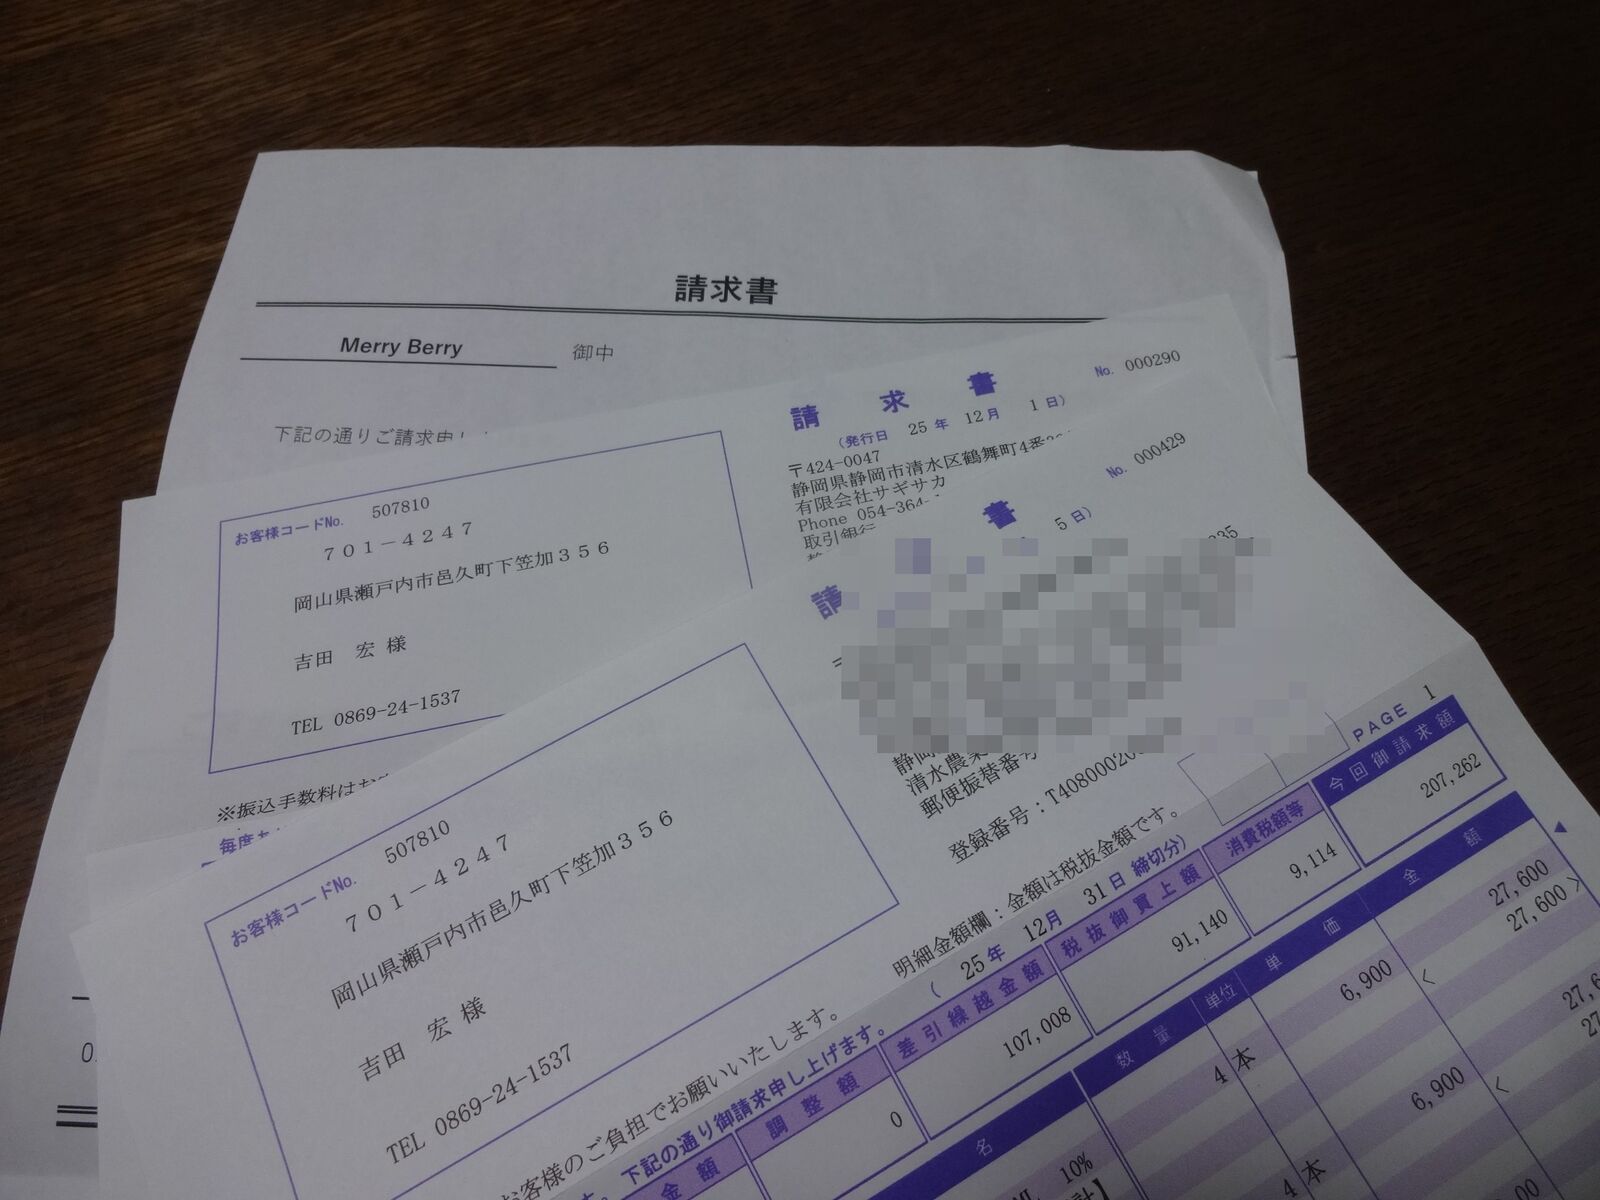 請求書
Merry Berry 御中
下記の通りご請求申し
請求書 No. 000290
(発行日 25年 12月 1日)
〒424-0047
静岡県静岡市清水区鶴舞町4番
有限会社サギサカ
Phone 054-364-
取引銀行
お客様コードNo. 507810
701-4247
岡山県瀬戸内市邑久町下笠加356
吉田 宏 様
TEL 0869-24-1537
※振込手数料は
毎度
請 書 No. 000429
5日)
静岡
清水農業
郵便振替番号
登録番号:T40800020
お客様コードNo. 507810
701-4247
岡山県瀬戸内市邑久町下笠加356
吉田 宏 様
TEL 0869-24-1537
明細金額欄:金額は税抜金額です。
PAGE 1
お客様のご負担でお願いいたします。
( 25年 12月 31日 締切分)
下記の通り御請求申し上げます。
金額 調整額 差引繰越金額 税抜御買上額 消費税額等 今回御請求額
0 107,008 91,140 9,114 207,262
名 数量 単位 単価 金額
4 本 6,900 27,600
< 27,600>
10% 4 本 6,900 27,6
< 27
計】